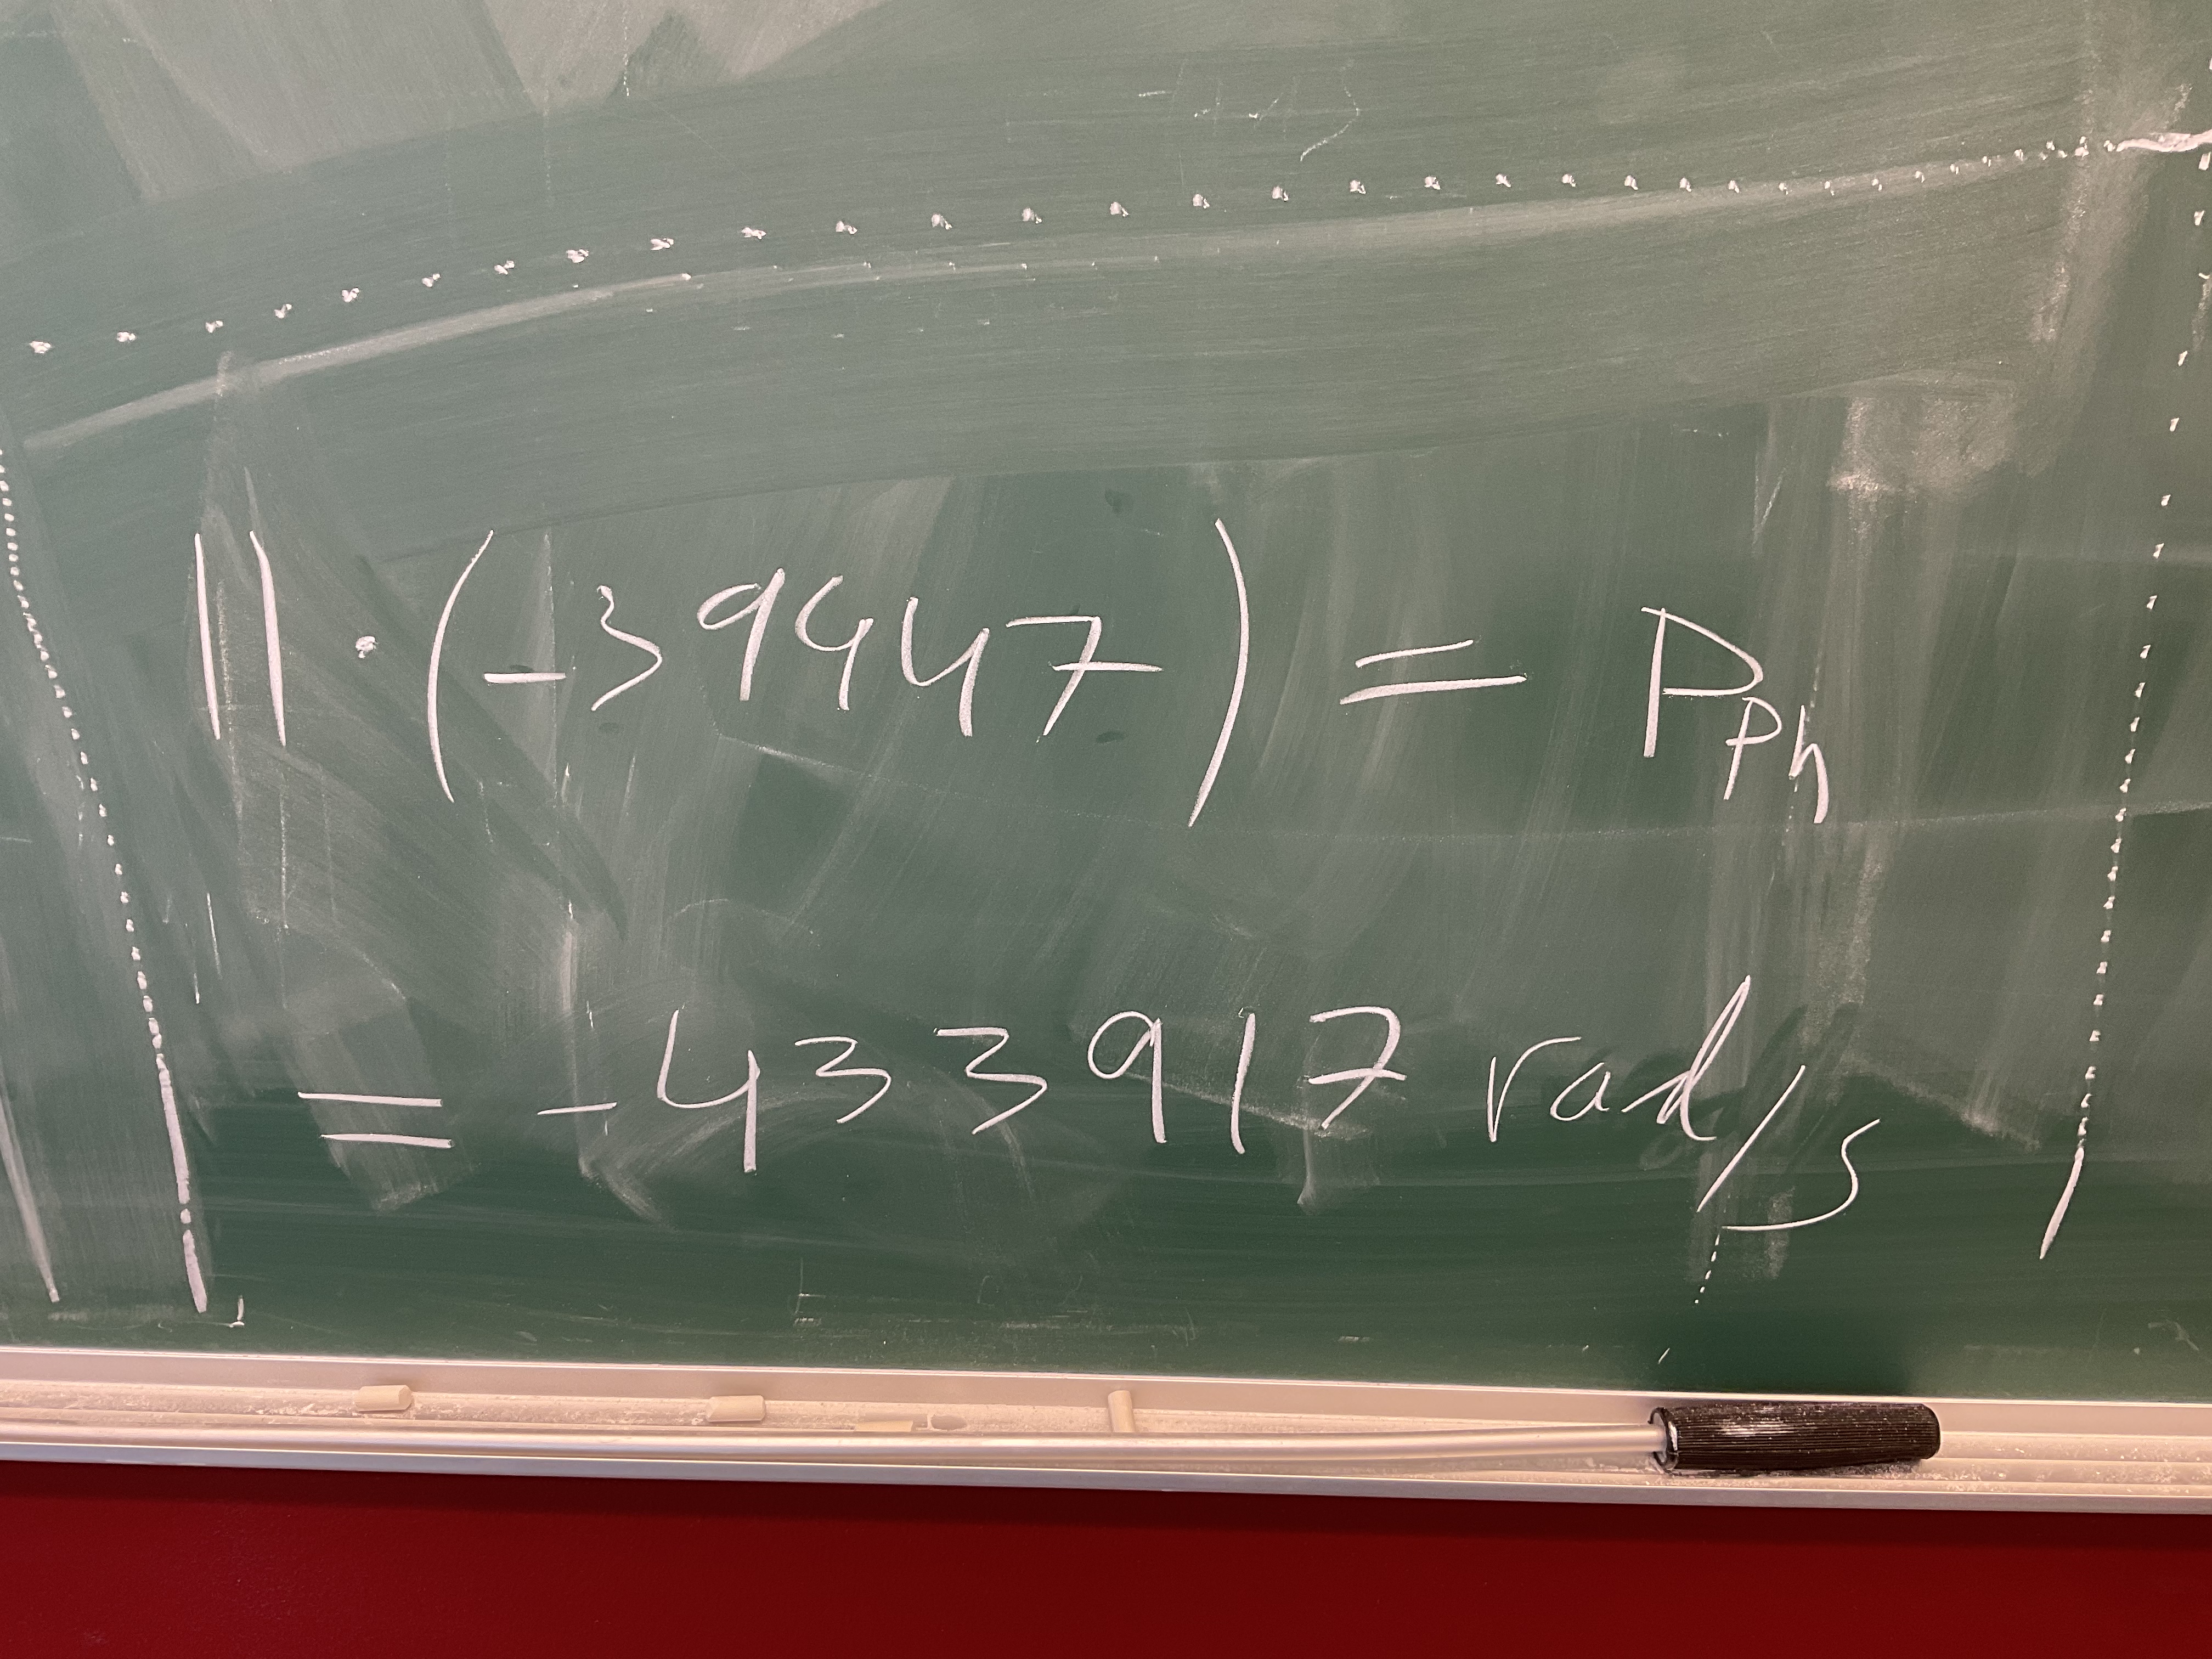 11 · (-39447) = P_ph
= -433917 rad/s